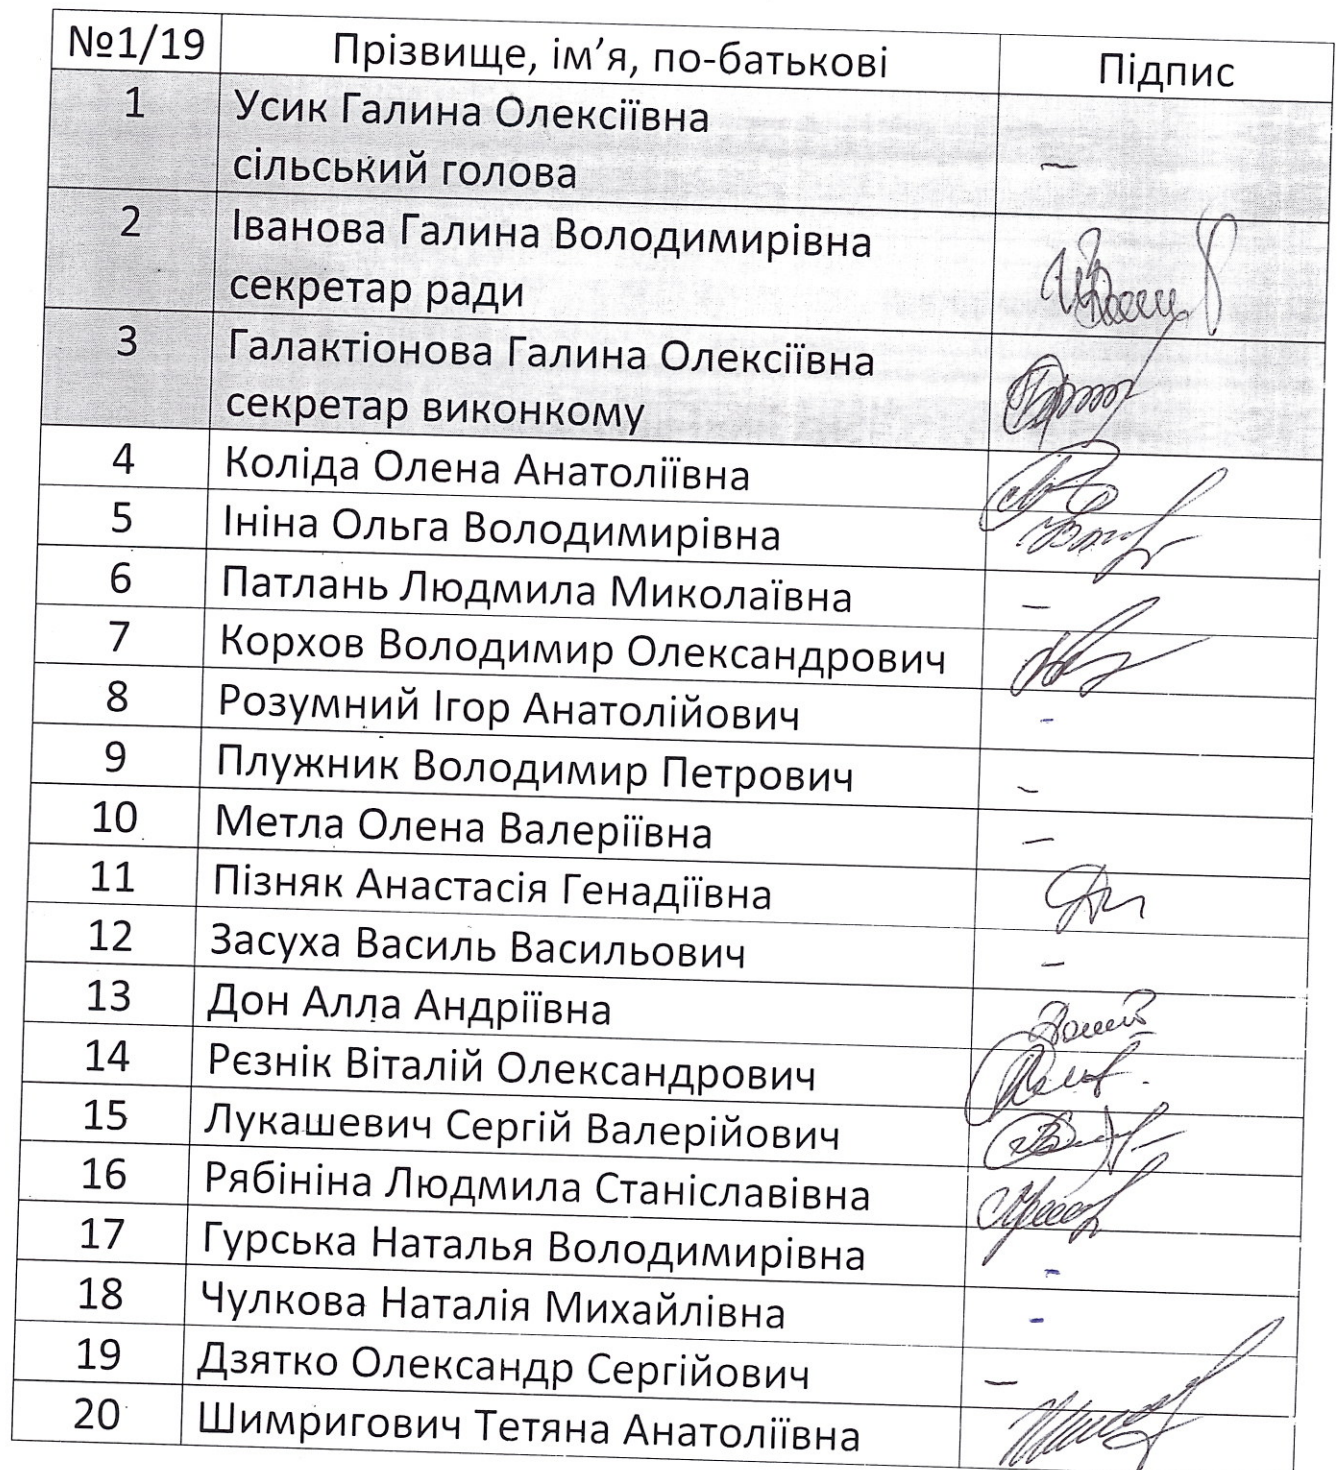 №1/19 Прізвище, ім’я, по-батькові Підпис
1 Усик Галина Олексіївна
сільський голова –
2 Іванова Галина Володимирівна
секретар ради
3 Галактіонова Галина Олексіївна
секретар виконкому
4 Коліда Олена Анатоліївна
5 Ініна Ольга Володимирівна
6 Патлань Людмила Миколаївна –
7 Корхов Володимир Олександрович
8 Розумний Ігор Анатолійович -
9 Плужник Володимир Петрович –
10 Метла Олена Валеріївна –
11 Пізняк Анастасія Генадіївна
12 Засуха Василь Васильович –
13 Дон Алла Андріївна
14 Рєзнік Віталій Олександрович
15 Лукашевич Сергій Валерійович
16 Рябініна Людмила Станіславівна
17 Гурська Наталья Володимирівна -
18 Чулкова Наталія Михайлівна -
19 Дзятко Олександр Сергійович –
20 Шимригович Тетяна Анатоліївна